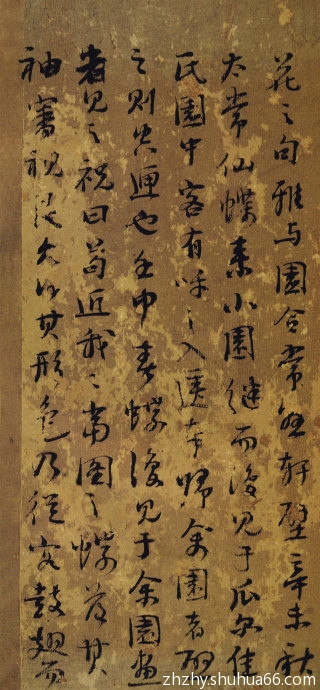 花之句雅与園合常懸軒壁辛未秋
太常仙蝶来小園継而復見于瓜尔佳
氏園中客有呼之入匣奉歸余園者啟
之則空匣也壬申春蝶復見于余園畫
者見之祝曰苟近我我當圖之蝶落其
袖審視良久得其形色乃從容鼓翅而
zhzhy.shuhua66.com